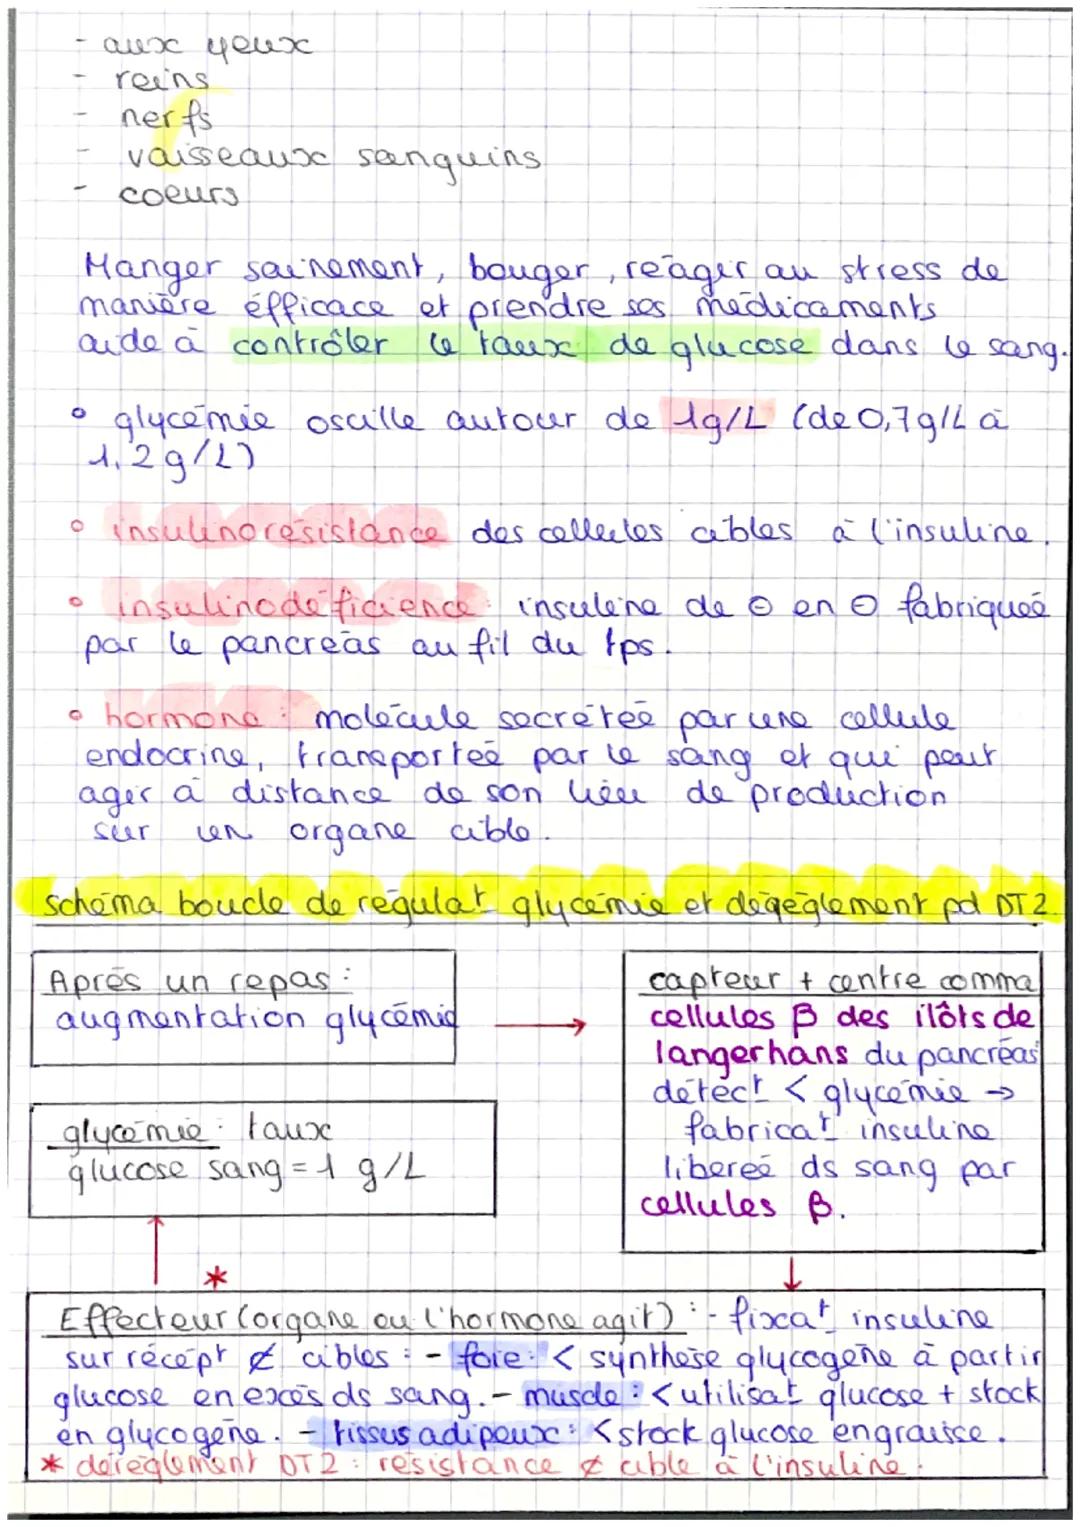 - aux yeux
- reins
- nerfs
- vaisseaux sanguins
- coeurs
Manger sainement, bouger, réagir au stress de
manière éfficace et prendre ses médicaments
aide à contrôler le taux de glucose dans le sang.
° glycémie oscille autour de 1g/L (de 0,7g/L à
1,2g/L)
° insulinorésistance des cellules cibles à l'insuline.
° insulinodéficience : insuline de ⊖ en ⊖ fabriqueé
par le pancréas au fil du tps.
° hormone : molécule secrétée par une cellule
endocrine, transportée par le sang et qui peut
agir à distance de son lieu de production
sur un organe cible.
schéma boucle de régulat° glycémie et dégèglement pd DT2
Après un repas :
augmentation glycémie
glycémie : taux
glucose sang = 1 g/L
capteur + centre comma
cellules β des îlots de
langerhans du pancréas
détect° < glycémie →
fabricat° insuline
libereé ds sang par
cellules β.
*
Effecteur (organe ou l'hormone agit) : - fixcat° insuline
sur récépt ¢ cibles : - foie : < synthèse glycogène à partir
glucose en excès ds sang. - muscle : < utilisat° glucose + stock
en glycogène. - tissus adipeux : < stock glucose en graisse.
* déréglement DT2 : résistance ¢ cible à l'insuline.